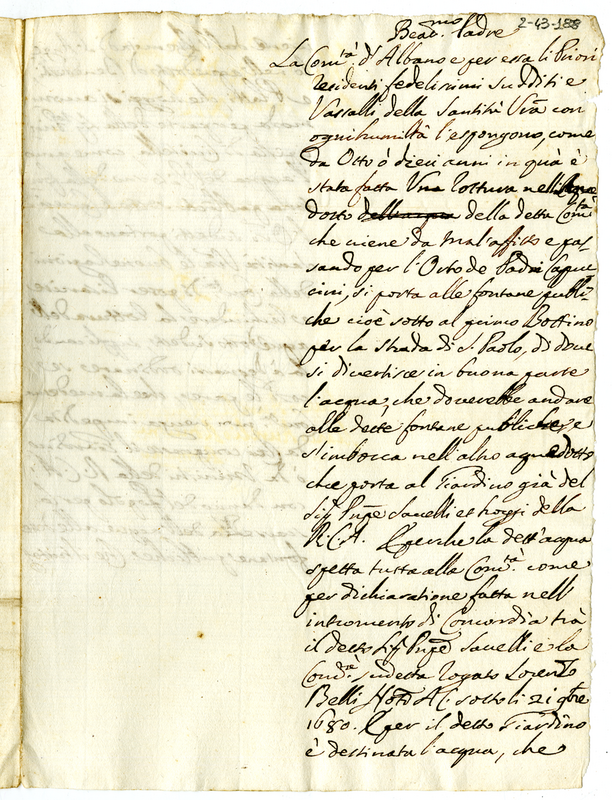 2-43-188
Beat.mo Padre
La Com.tà d'Albano e per essa li Priori
residenti fedelissimi sudditi e
Vassalli della Santità Vrã con
ogni humiltà l'espongono, come
da Otto ò dieci anni in quà è
stata fatta Una rottura nell'Aque
dotto dell'acqua della detta Com.tà
che viene da Mal'affitto e pas-
sando per l'Orto de Padri Capuc
cini, si porta alle fontane publi-
che cioè sotto al primo Bottino
per la strada di S. Paolo, di dove
si divertisce in buona parte
l'acqua, che doverebbe andare
alle dette fontane publiche, e
s'imbocca nell'altro aquedotto
che porta al Giardino già del
Sig.r Pnpe Savelli et hoggi della
R.C.A. E perche la dett'acqua
spetta tutta alla Com.tà come
per dichiaratione fatta nell'
instromento di Concordia trà
il detto Sig.r Pnpe Savelli e la
Com.tà sudetta rogato Lorenzo
Belli Not. A.C. sotto li 21 9bre
1680. E per il detto Giardino
è destinata l'acqua, che